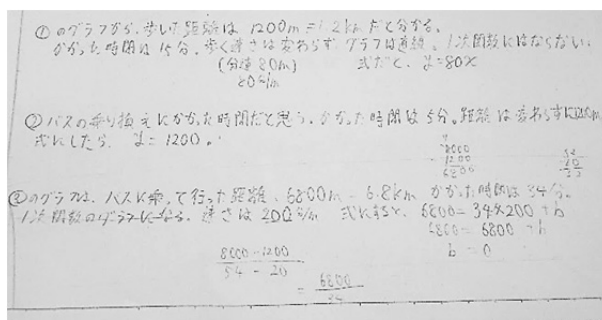 ①のグラフから、歩いた距離は 1200m=1.2kmだと分かる。
かかった時間は15分。歩く速さは変わらず、グラフは直線。1次関数にはならない。
(分速80m) 式だと、y=80x
80m/m
②バスの乗り換えにかかった時間だと思う。かかった時間は5分。距離は変わらずに1200m
式にしたら、y=1200。
8000
1200
6800
54
20
34
③のグラフは、バスに乗って行った距離、6800m=6.8km かかった時間は34分。
1次関数のグラフになる。速さは200m/m 式にすると、6800=34×200+b
6800=6800+b
b=0
8000-1200
54-20
=6800
34